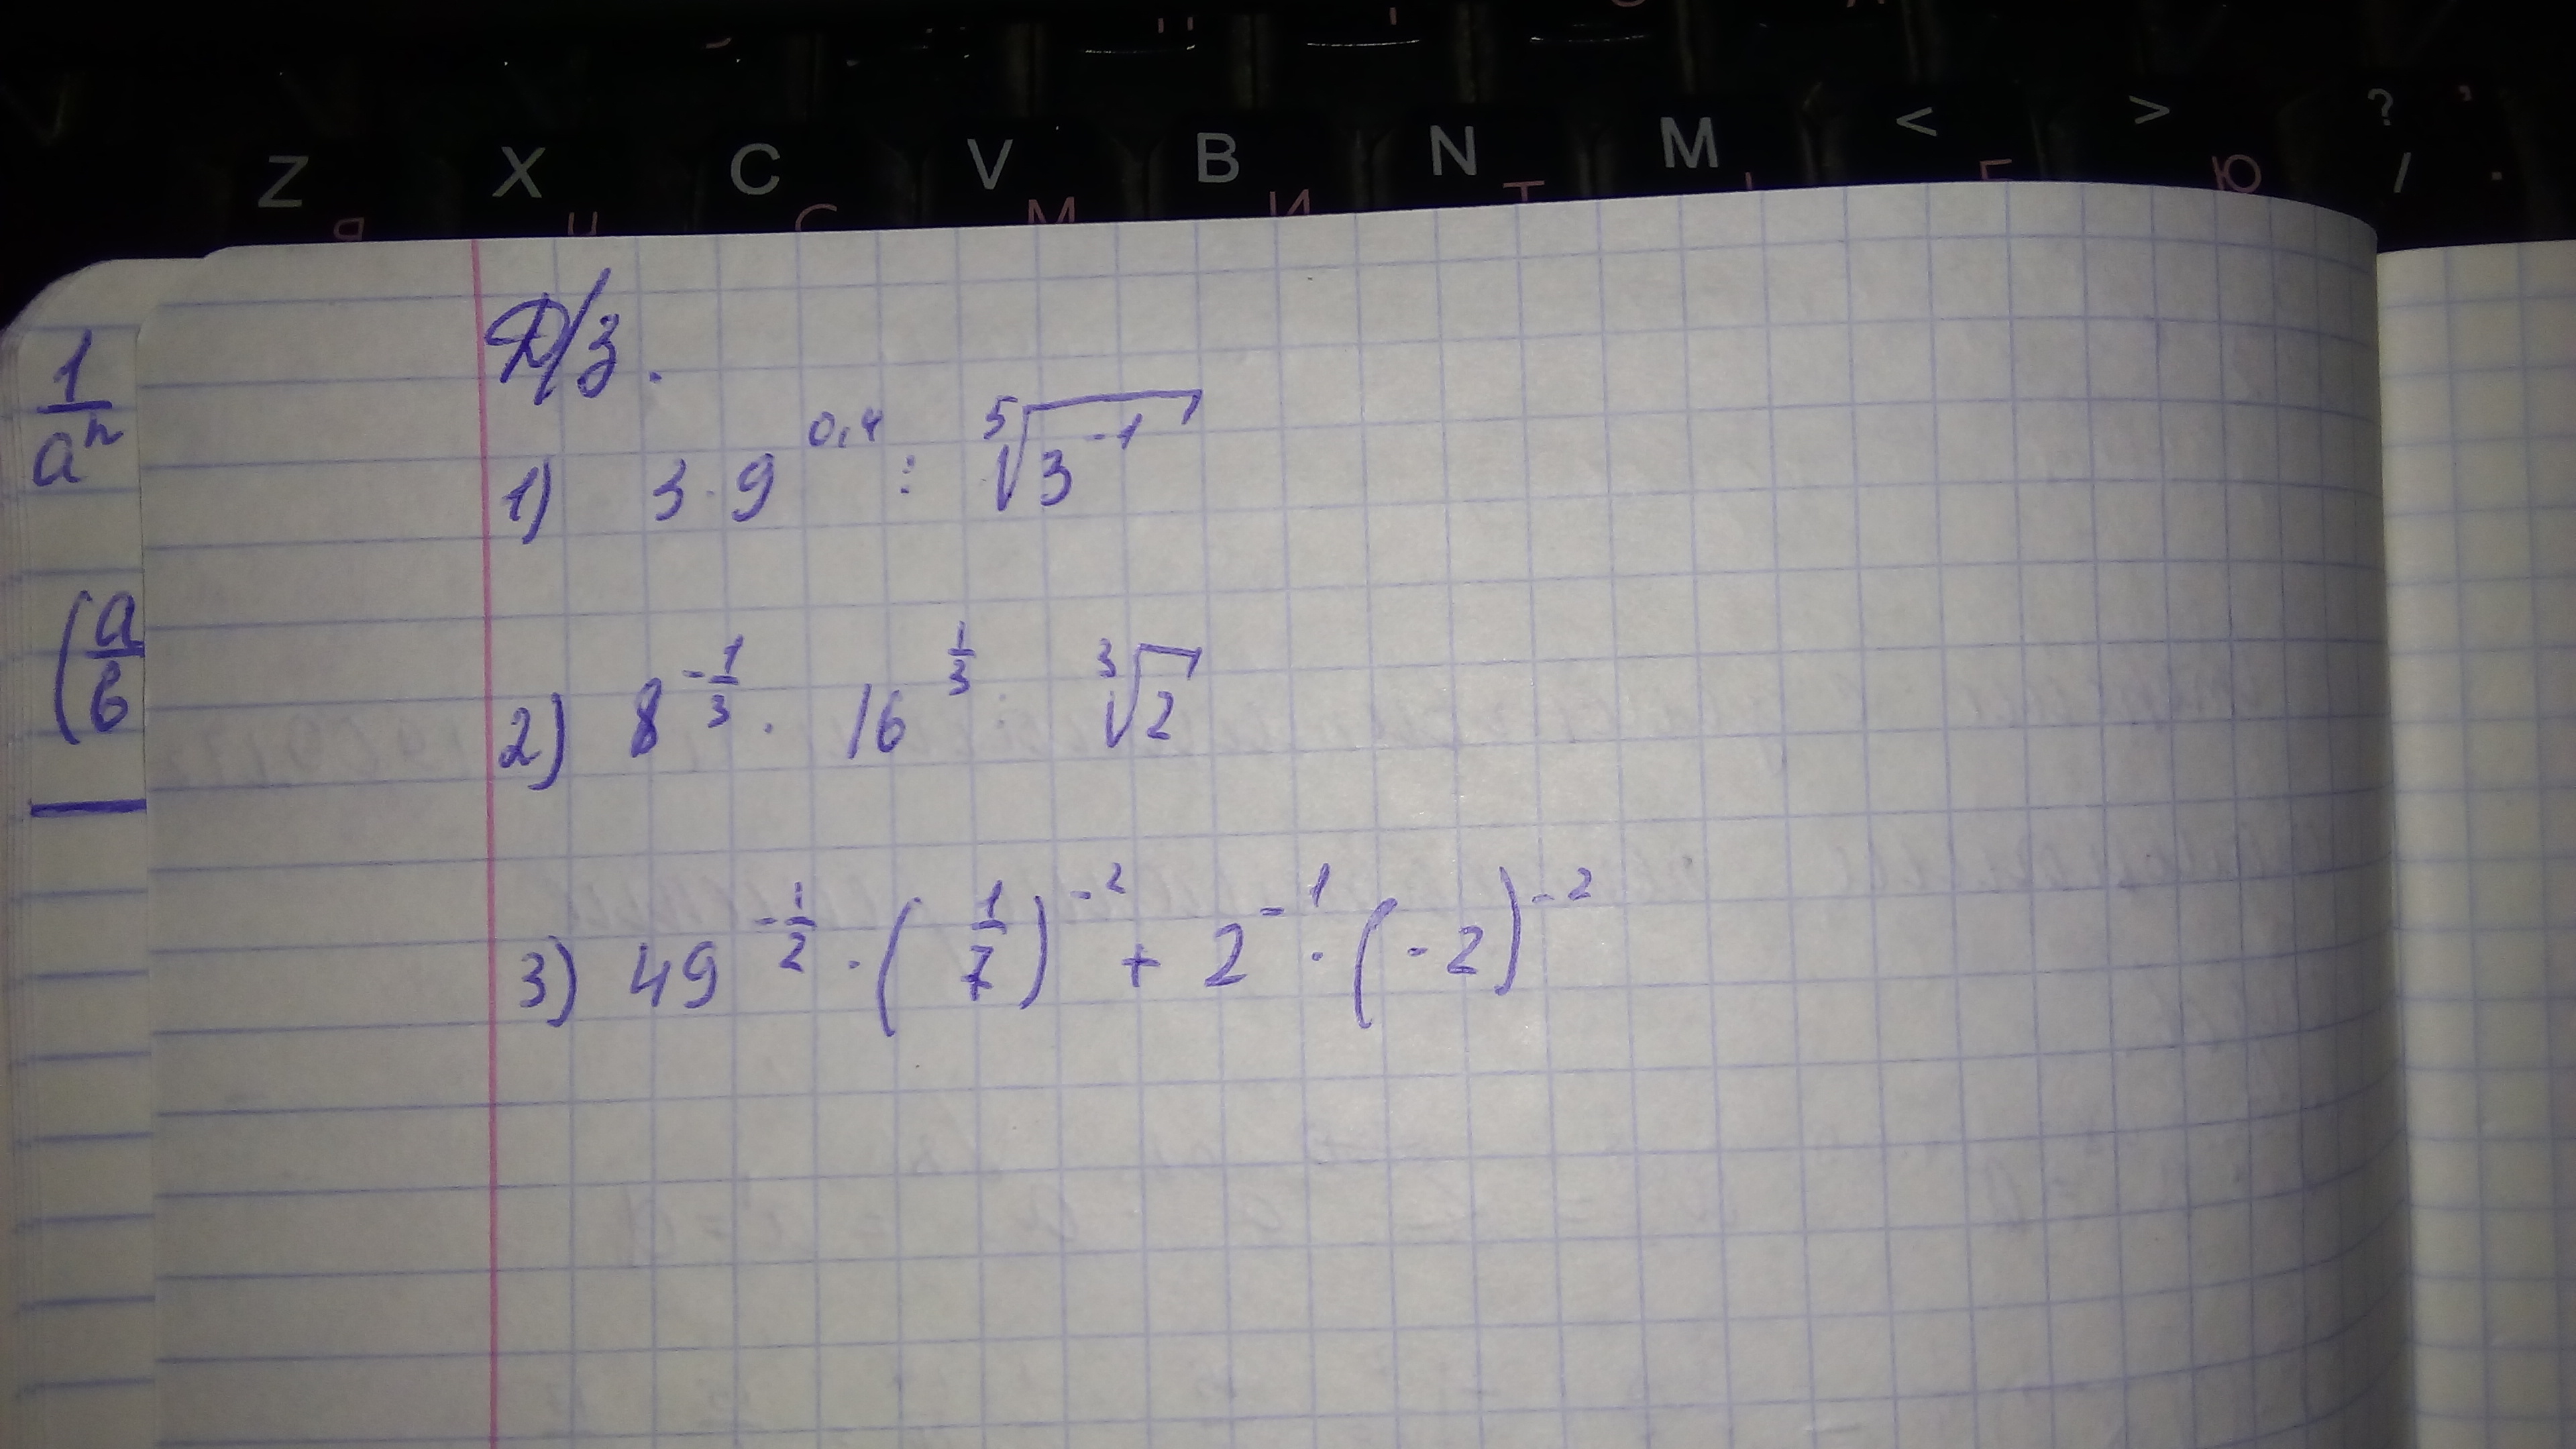 Z X C V B N M < > ? /
Я С М И Т Ю .
1/aⁿ
(a/b
Д/з.
1) 3·9^0,4 : ⁵√3^-1
2) 8^-1/3 · 16^1/3 : ³√2
3) 49^-1/2 · (1/7)^-2 + 2^-1 · (-2)^-2